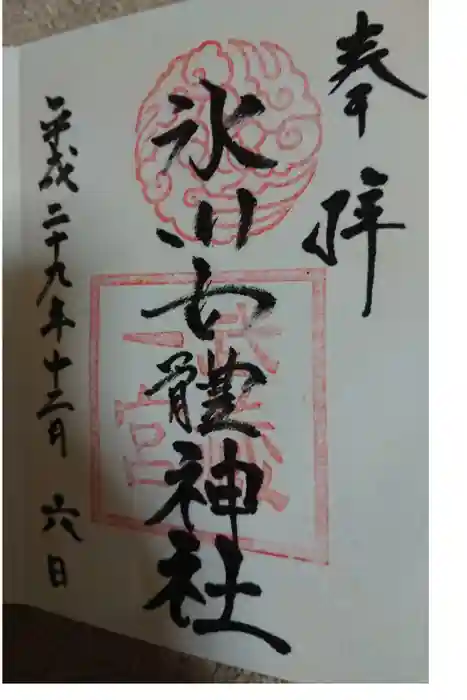 奉拝
氷川女體神社
武蔵
一宮
平成二十九年十二月 六日